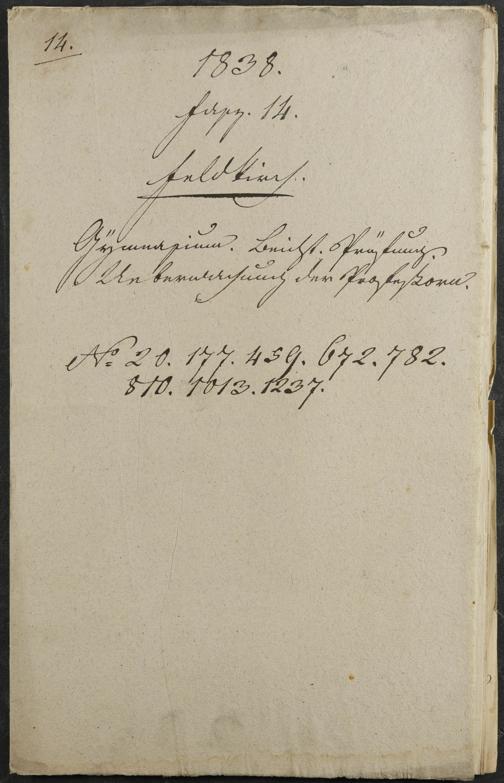 14.
1838.
Fasz. 14.
Feldkirch.
Gÿmnasium. Beicht. Prüfung.
Ueberwachung der Professoren.
No 20. 177. 459. 672. 782.
810. 1013. 1237.